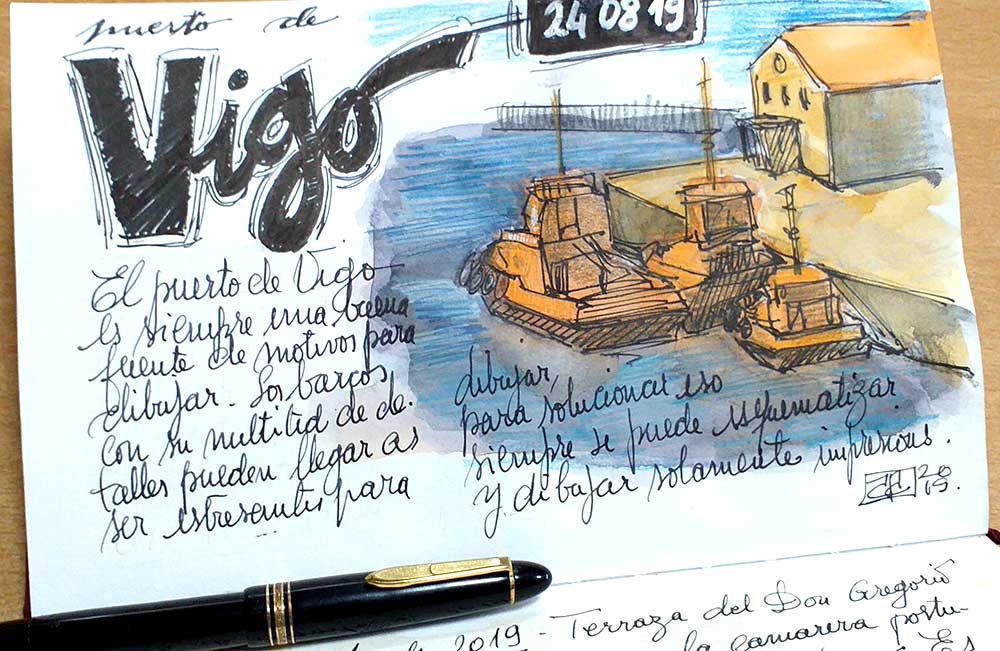 puerto de
Vigo
24 08 19
El puerto de Vigo
es siempre una buena
fuente de motivos para
dibujar. Los barcos,
con su multitud de de-
talles pueden llegar a
ser estresantes para
dibujar,
para solucionar eso
siempre se puede esquematizar
y dibujar solamente impresions.
2019.
2019 - Terraza del Don Gregorio
la camarera portu-
Es